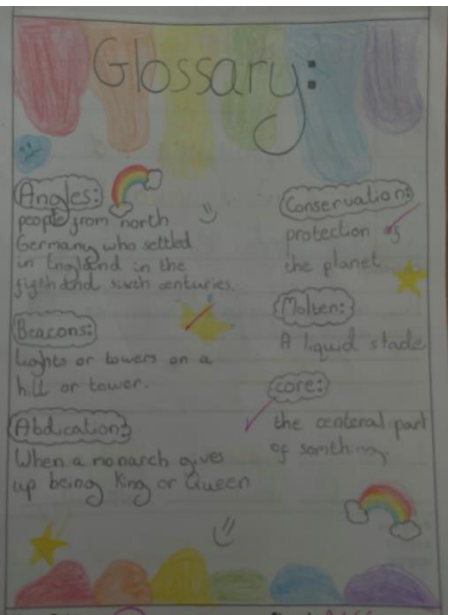 Glossary:
Angles:
people from north
Germany who settled
in England in the
fifth and sixth centuries.
Beacons:
Lights or towers on a
hill or tower.
Abdication:
When a monarch gives
up being King or Queen
Conservation:
protection of
the planet
Molten:
A liquid state
core:
the centeral part
of somthing.